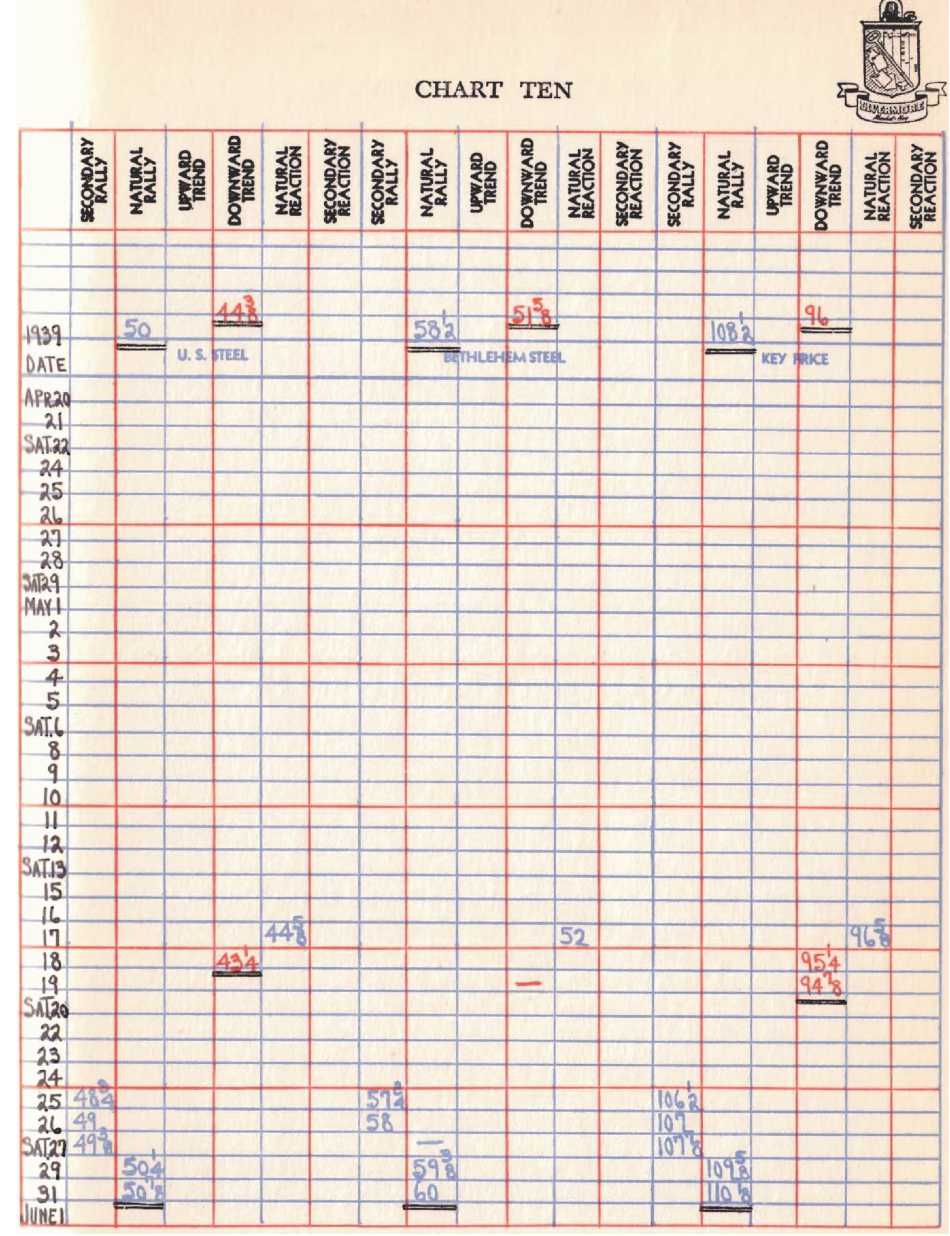 CHART TEN
LIVERMORE
Market Key
SECONDARY RALLY NATURAL RALLY UPWARD TREND DOWNWARD TREND NATURAL REACTION SECONDARY REACTION SECONDARY RALLY NATURAL RALLY UPWARD TREND DOWNWARD TREND NATURAL REACTION SECONDARY REACTION SECONDARY RALLY NATURAL RALLY UPWARD TREND DOWNWARD TREND NATURAL REACTION SECONDARY REACTION
44 3/8 51 5/8 96
1939 50 58 1/2 108 1/2
DATE U. S. STEEL BETHLEHEM STEEL KEY PRICE
APR.20
21
SAT.22
24
25
26
27
28
SAT.29
MAY 1
2
3
4
5
SAT.6
8
9
10
11
12
SAT.13
15
16
17 44 5/8 52 96 5/8
18 43 1/4 95 1/4
19 — 94 7/8
SAT.20
22
23
24
25 48 3/4 57 3/4 106 1/2
26 49 58 107
SAT.27 49 3/8 — 107 7/8
29 50 1/4 59 3/8 109 5/8
31 50 7/8 60 110 7/8
JUNE 1